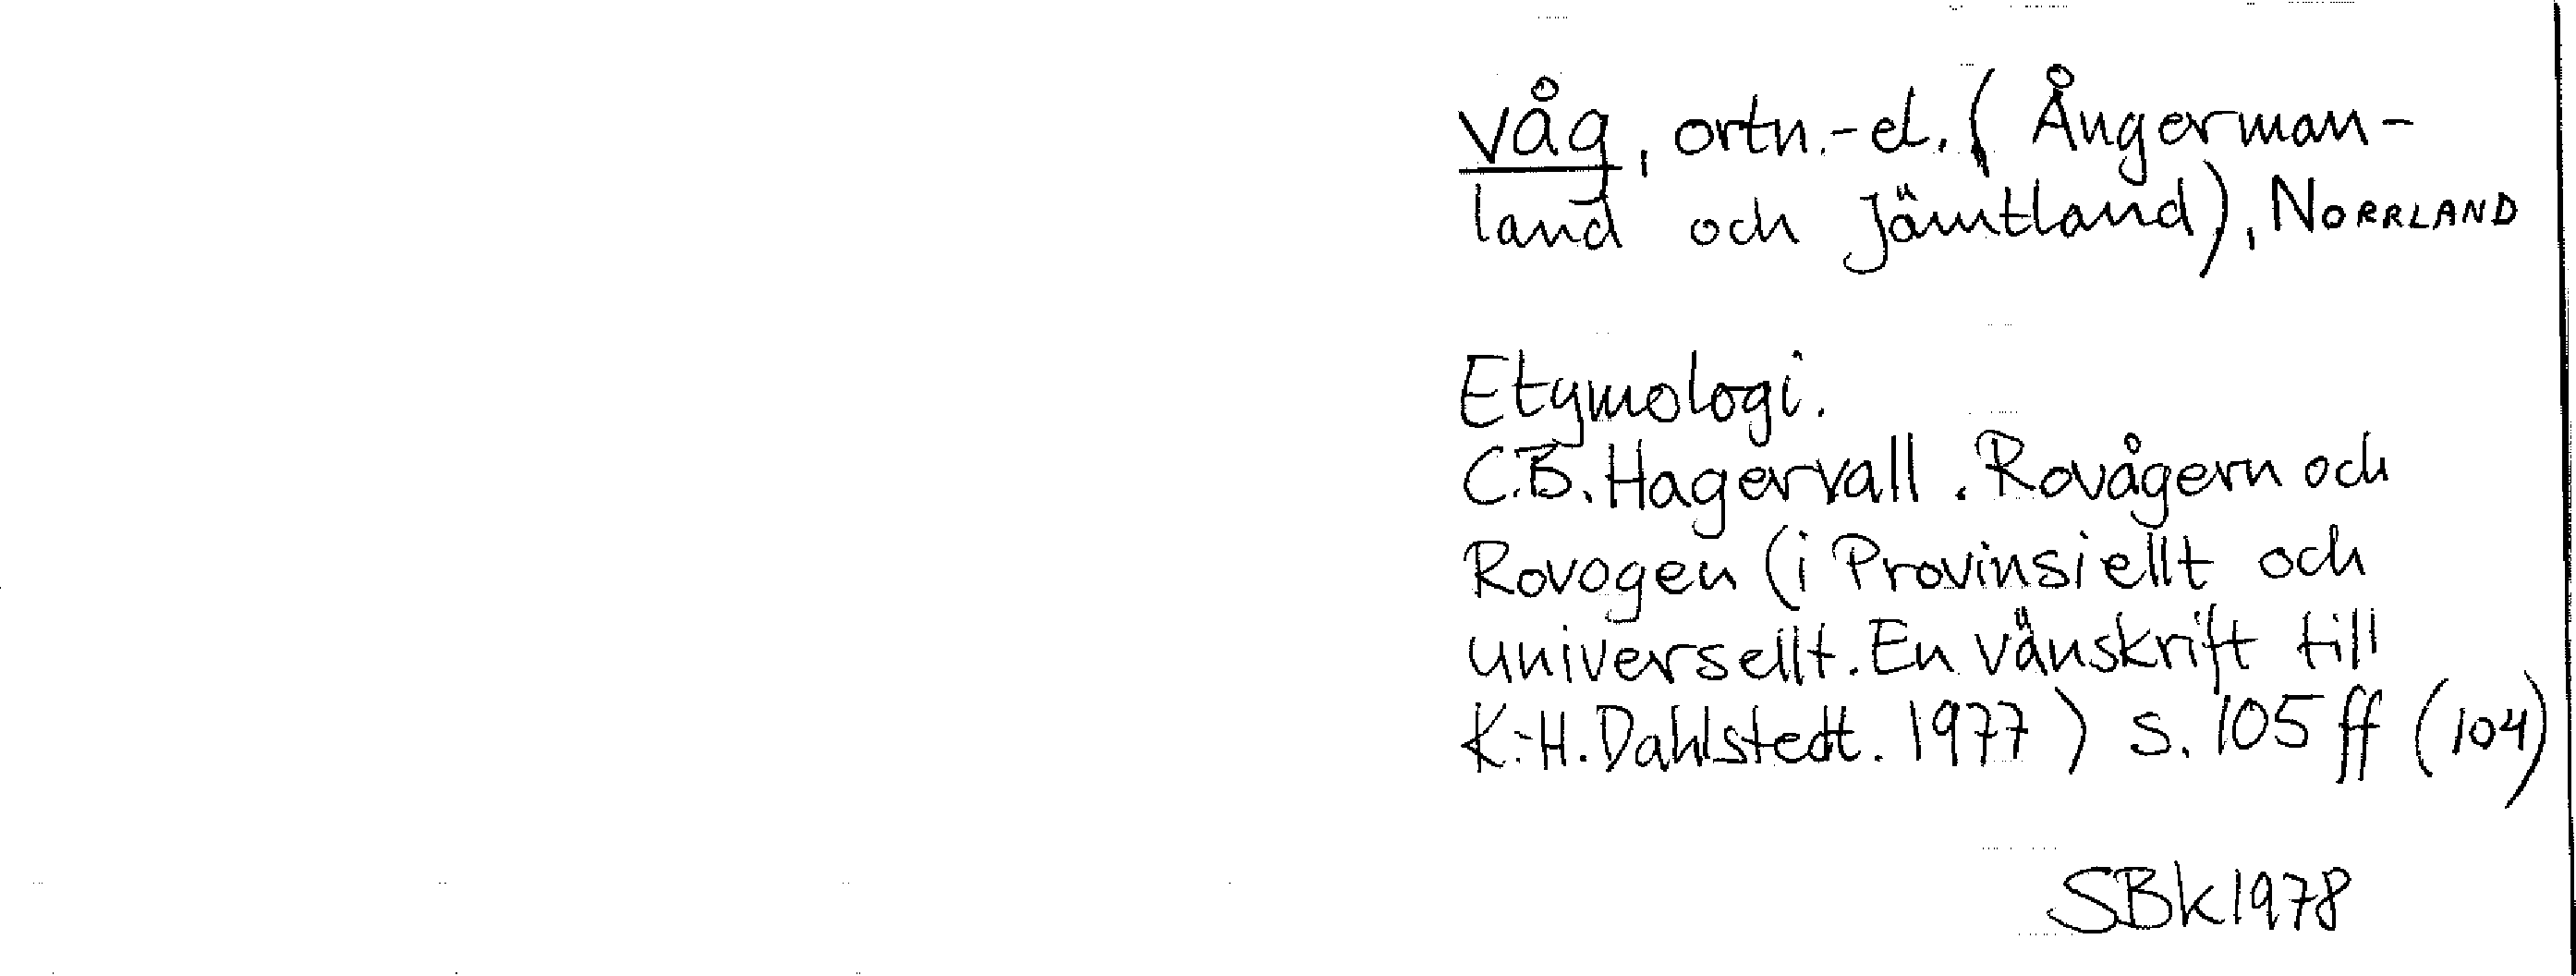 våg, ortn.-el. (Ångerman-
land och Jämtland), NORRLAND
Etymologi.
C.B. Hagervall. Rovågern och
Rovogen (i Provinsiellt och
universellt. En vänskrift till
K.-H. Dahlstedt. 1977) s. 105 ff (104)
SBk 1978